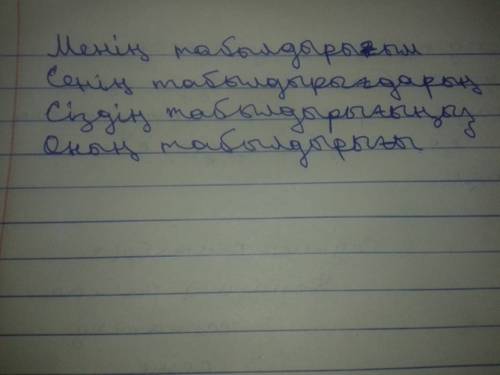 Менің табылдырығым
Сенің табылдырығдарың
Сіздің табылдырығыңыз
Оның табылдырығы